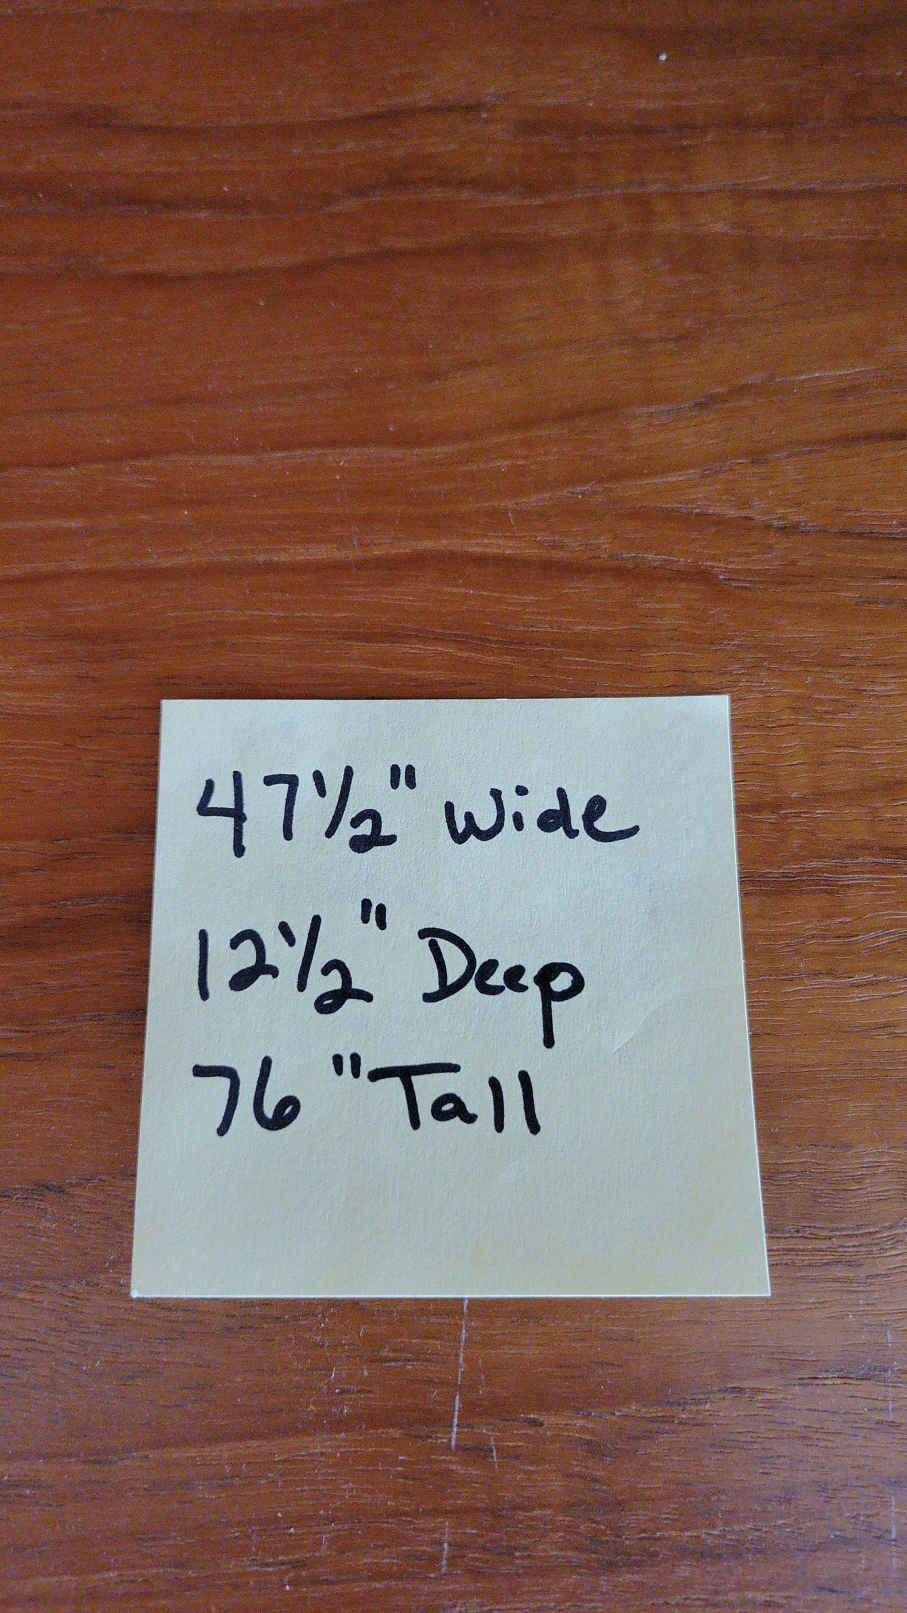 47½" Wide
12½" Deep
76" Tall